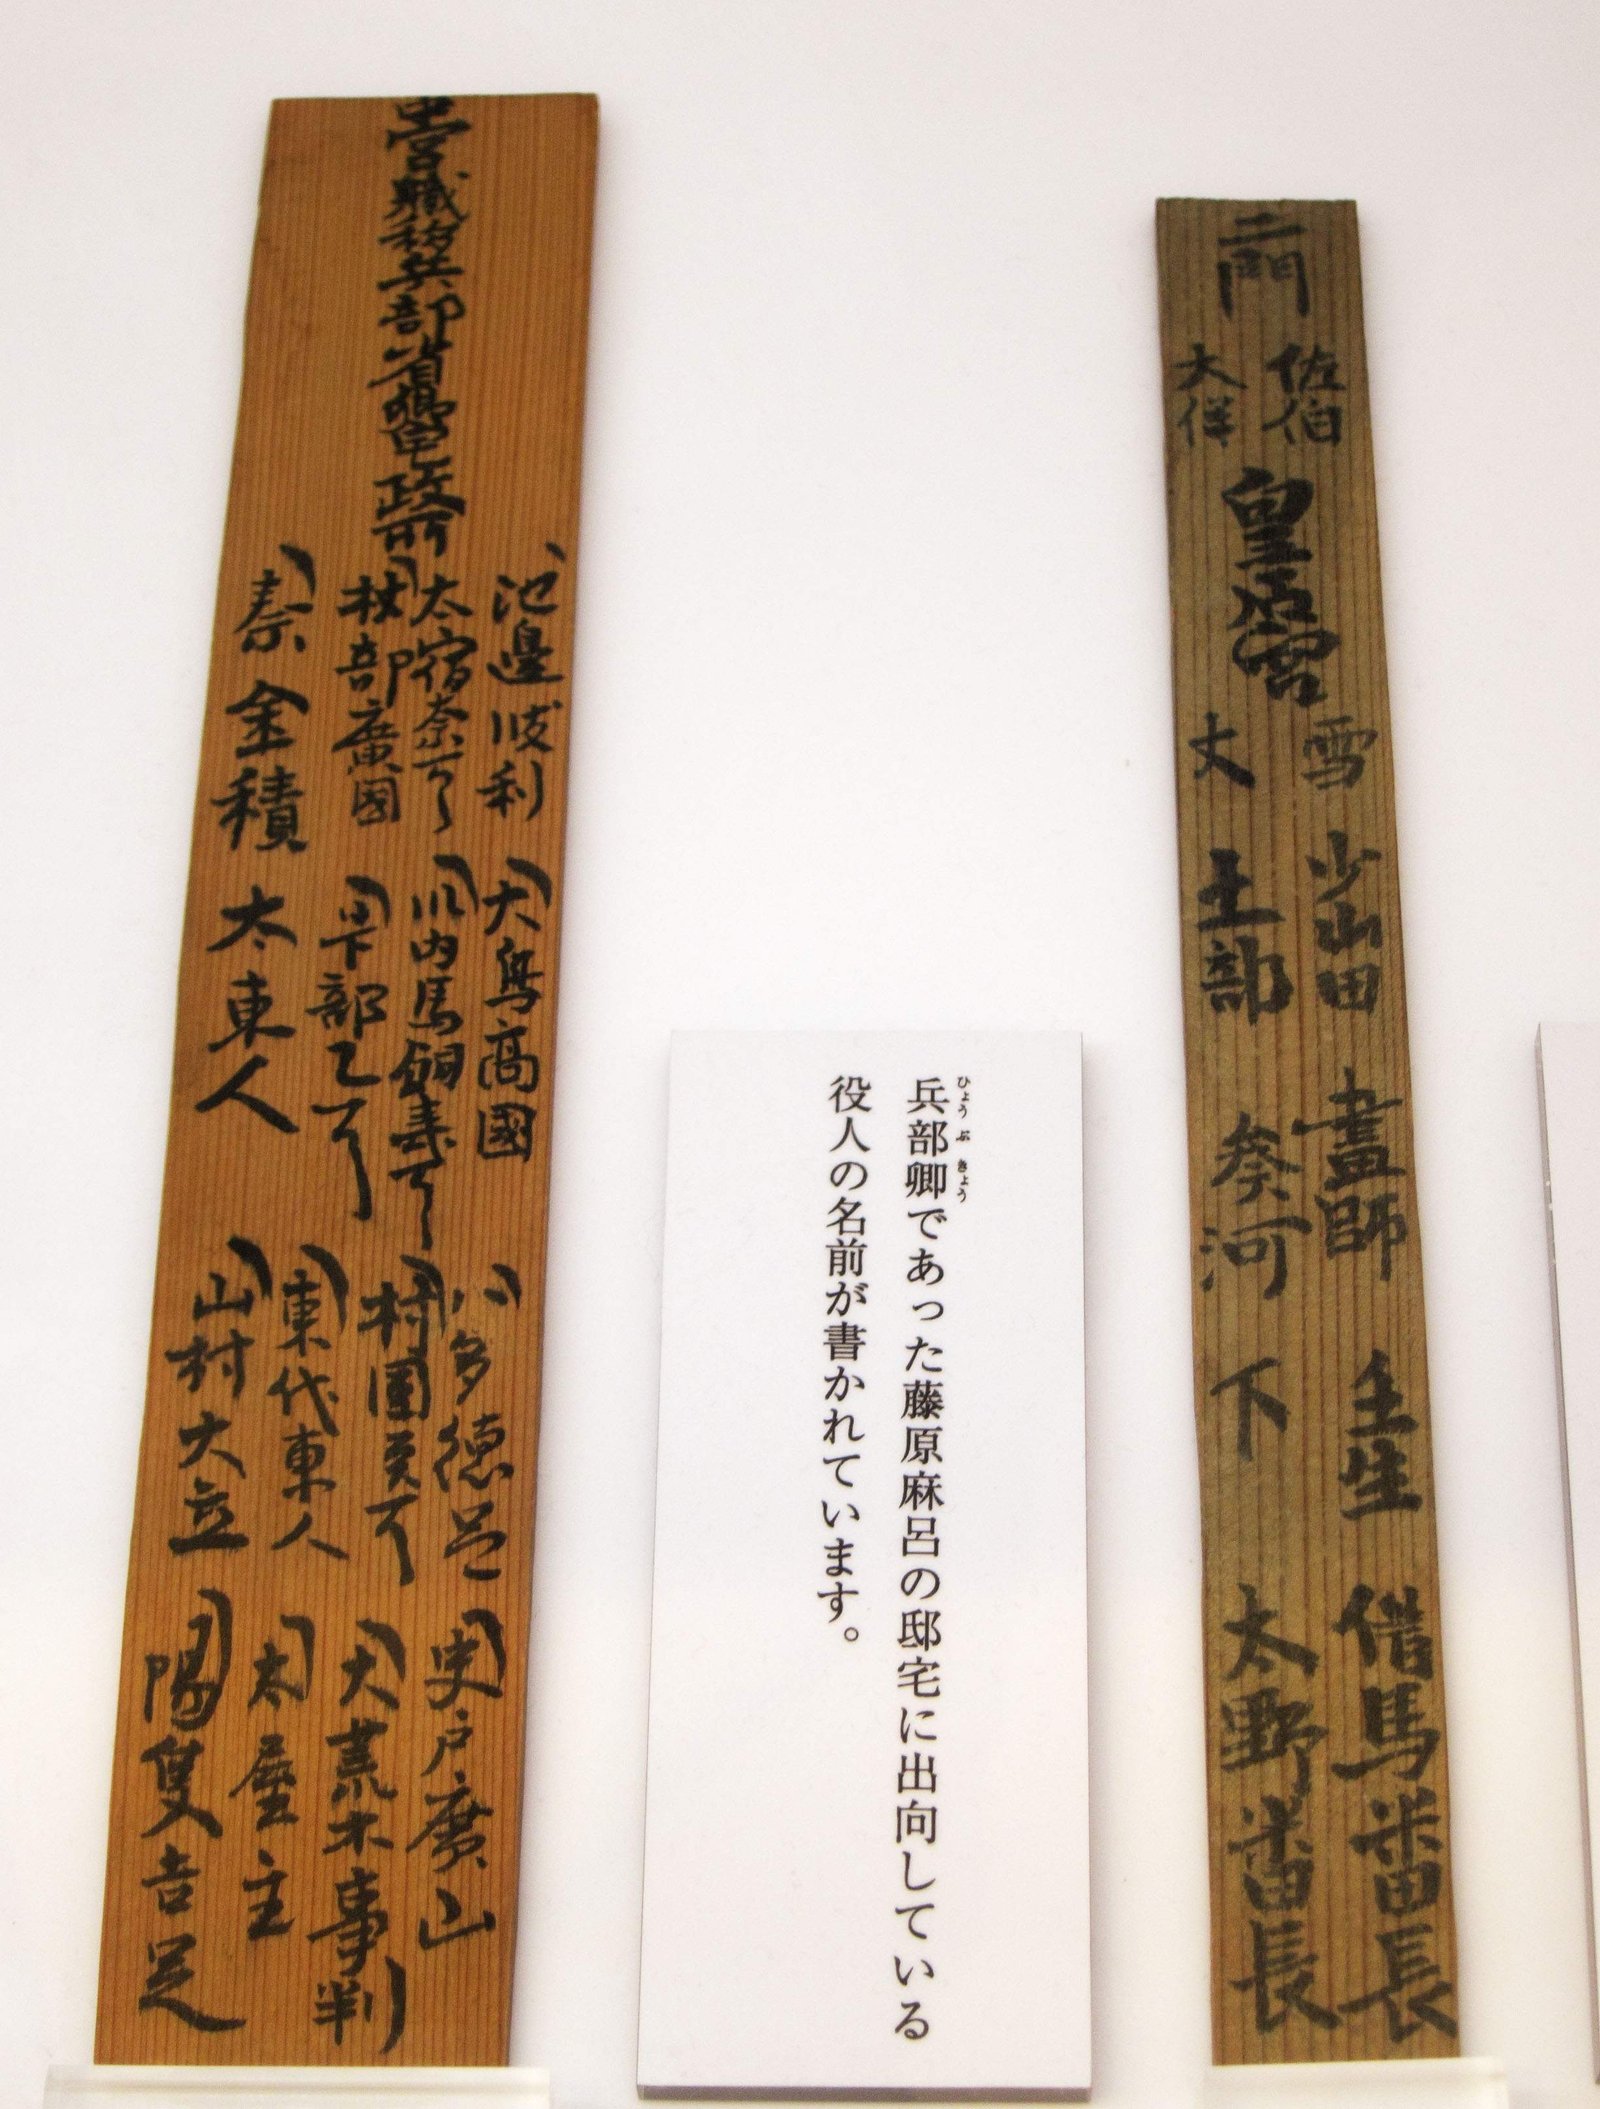 二門
佐伯
大伴
皇后宮
雪 少山田 畫師 壬生 借馬番長
丈 土部 秦河 下 太野番長
兵部卿であった藤原麻呂の邸宅に出向している
ひょう ぶ きょう
役人の名前が書かれています。
中宮職移兵部省卿宅政所
池邊波利 大鳥高國 八多徳足 史戸廣山
太宿奈万呂 川内馬飼夷万呂 村國虫万呂 大荒木事判
杖部廣國 日下部乙万呂 東代東人 太屋主
秦金積 太東人 山村大立 陽侯吉足